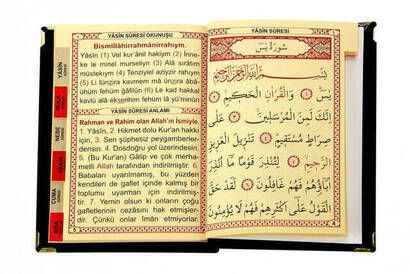 YÂSİN SÛRESİ OKUNUŞU
Bismillâhirrahmânirrahym.
(1) Yâsîn (2) Vel kur'ânil hakiym (3) İnne-
ke le minel murseliyn (3) Alâ sırâtım
müstekıym (4) Tenziylel aziyzir rahıym
(5) Li tünzira kavmem mâ ünzira âbâ-
ühüm fehüm ğâfilûn (6) Le kad hakkal
kavlü alâ ekserihim fehüm lâ yü'minûn
YÂSİN SÛRESİ ANLAMI
Rahman ve Rahim olan Allah'ın ismiyle.
1. Yâsîn, 2. Hikmet dolu Kur'an hakkı
için, 3. Sen şüphesiz peygamberler-
densin. 4. Dosdoğru yol üzerindesin.
5. (Bu Kur'an) Gâlip ve çok merha-
metli Allah tarafından indirilmiştir. 6.
Babaları uyarılmamış, bu yüzden
kendileri de gaflet içinde kalmış bir
toplumu uyarman için indirilmiş-
tir. 7. Yemin olsun ki onların çoğu
gafletlerinin cezasını hak etmişler-
dir. Çünkü onlar îman etmiyorlar.
5
YÂSİN
MÜLK
NEBE
CUMA
YÂSÎN SÛRESİ
سُورَةُ يٰسٓ
بِسْمِ اللّٰهِ الرَّحْمٰنِ الرَّحِيمِ
يٰسٓ ﴿١﴾ وَالْقُرْاٰنِ الْحَكِيمِ ﴿٢﴾
اِنَّكَ لَمِنَ الْمُرْسَلِينَ ﴿٣﴾ عَلٰى
صِرَاطٍ مُسْتَقِيمٍ ﴿٤﴾ تَنْزِيلَ الْعَزِيزِ
الرَّحِيمِ ﴿٥﴾ لِتُنْذِرَ قَوْمًا مَٓا اُنْذِرَ
اٰبَٓاؤُهُمْ فَهُمْ غَافِلُونَ ﴿٦﴾ لَقَدْ حَقَّ
الْقَوْلُ عَلٰٓى اَكْثَرِهِمْ فَهُمْ لَا يُؤْمِنُونَ
4